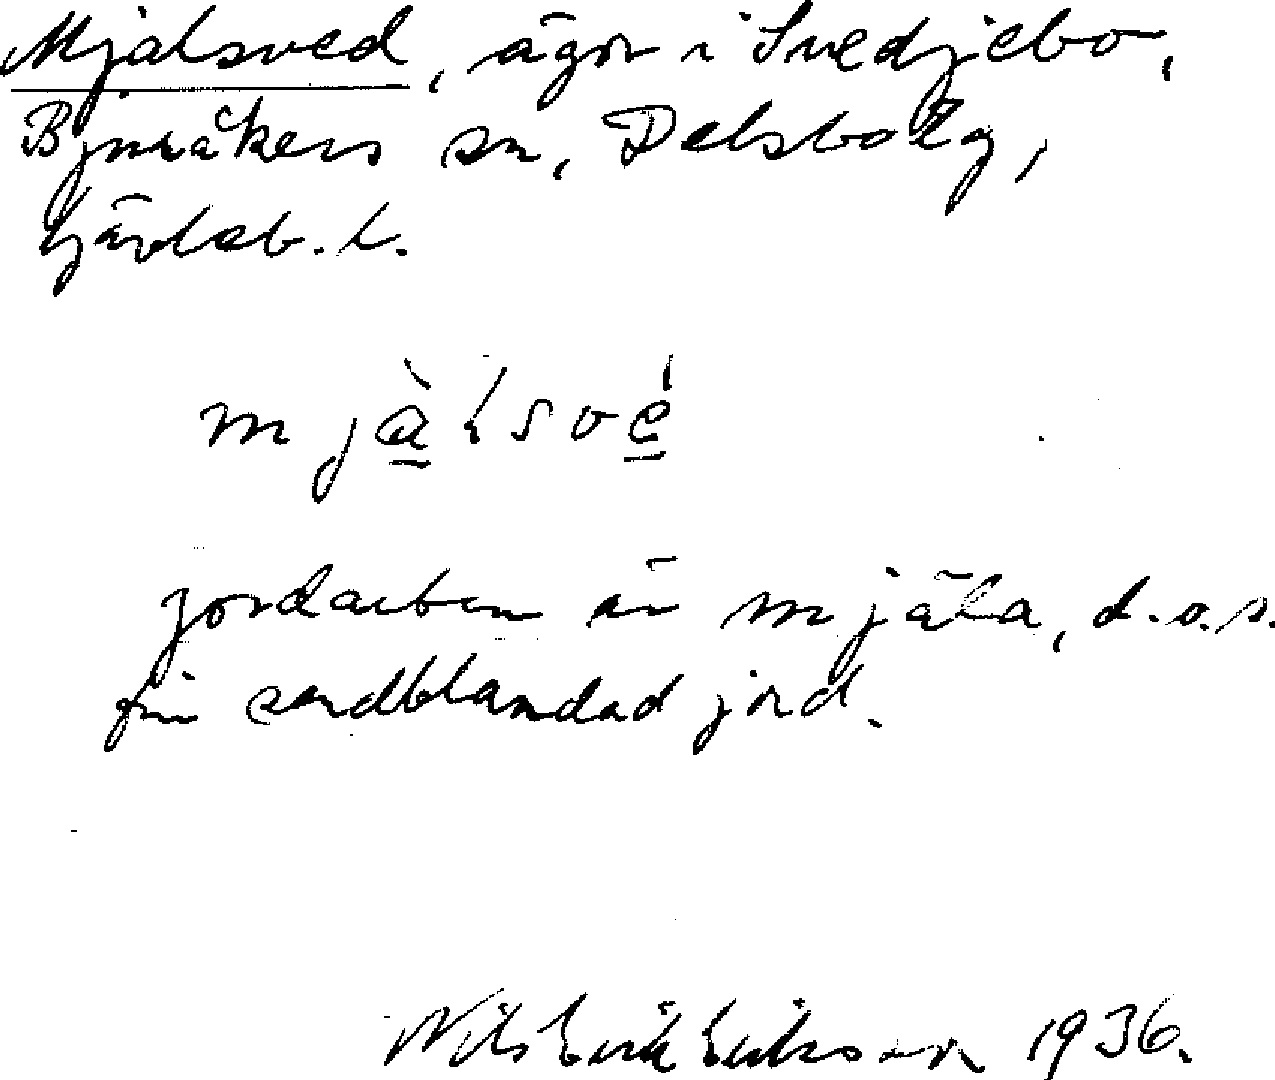 Mjälsved, ägor i Svedjebo,
Bjuråkers sn, Delsbo tg,
Gävleb. l.
mjä̀lsvé
jordarten är mjäla, d.v.s.
fin sandblandad jord.
Nils Erik Eriksson 1936.